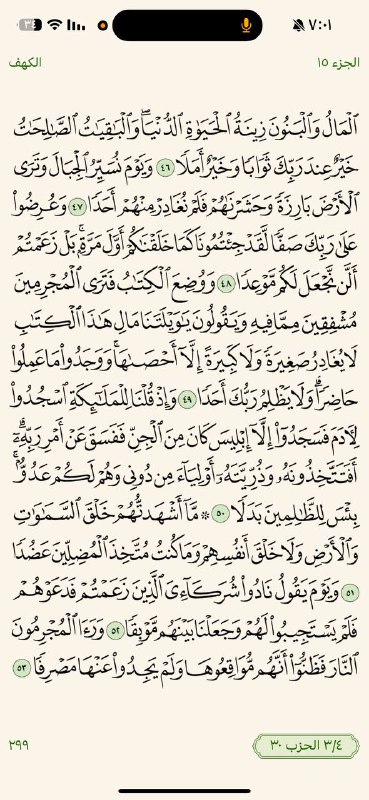 ٧:٠١
الجزء ١٥
الكهف
ٱلْمَالُ وَٱلْبَنُونَ زِينَةُ ٱلْحَيَوٰةِ ٱلدُّنْيَاۖ وَٱلْبَٰقِيَٰتُ ٱلصَّٰلِحَٰتُ
خَيْرٌ عِندَ رَبِّكَ ثَوَابًا وَخَيْرٌ أَمَلًا ٤٦ وَيَوْمَ نُسَيِّرُ ٱلْجِبَالَ وَتَرَى
ٱلْأَرْضَ بَارِزَةً وَحَشَرْنَٰهُمْ فَلَمْ نُغَادِرْ مِنْهُمْ أَحَدًا ٤٧ وَعُرِضُوا۟
عَلَىٰ رَبِّكَ صَفًّا لَّقَدْ جِئْتُمُونَا كَمَا خَلَقْنَٰكُمْ أَوَّلَ مَرَّةٍۭۚ بَلْ زَعَمْتُمْ
أَلَّن نَّجْعَلَ لَكُم مَّوْعِدًا ٤٨ وَوُضِعَ ٱلْكِتَٰبُ فَتَرَى ٱلْمُجْرِمِينَ
مُشْفِقِينَ مِمَّا فِيهِ وَيَقُولُونَ يَٰوَيْلَتَنَا مَالِ هَٰذَا ٱلْكِتَٰبِ
لَا يُغَادِرُ صَغِيرَةً وَلَا كَبِيرَةً إِلَّآ أَحْصَىٰهَاۚ وَوَجَدُوا۟ مَا عَمِلُوا۟
حَاضِرًاۗ وَلَا يَظْلِمُ رَبُّكَ أَحَدًا ٤٩ وَإِذْ قُلْنَا لِلْمَلَٰٓئِكَةِ ٱسْجُدُوا۟
لِءَادَمَ فَسَجَدُوٓا۟ إِلَّآ إِبْلِيسَ كَانَ مِنَ ٱلْجِنِّ فَفَسَقَ عَنْ أَمْرِ رَبِّهِۦٓۗ
أَفَتَتَّخِذُونَهُۥ وَذُرِّيَّتَهُۥٓ أَوْلِيَآءَ مِن دُونِى وَهُمْ لَكُمْ عَدُوٌّۢۚ
بِئْسَ لِلظَّٰلِمِينَ بَدَلًا ٥٠ ۞ مَّآ أَشْهَدتُّهُمْ خَلْقَ ٱلسَّمَٰوَٰتِ
وَٱلْأَرْضِ وَلَا خَلْقَ أَنفُسِهِمْ وَمَا كُنتُ مُتَّخِذَ ٱلْمُضِلِّينَ عَضُدًا
٥١ وَيَوْمَ يَقُولُ نَادُوا۟ شُرَكَآءِىَ ٱلَّذِينَ زَعَمْتُمْ فَدَعَوْهُمْ
فَلَمْ يَسْتَجِيبُوا۟ لَهُمْ وَجَعَلْنَا بَيْنَهُم مَّوْبِقًا ٥٢ وَرَءَا ٱلْمُجْرِمُونَ
ٱلنَّارَ فَظَنُّوٓا۟ أَنَّهُم مُّوَاقِعُوهَا وَلَمْ يَجِدُوا۟ عَنْهَا مَصْرِفًا ٥٣
٣/٤ الحزب ٣٠
٢٩٩